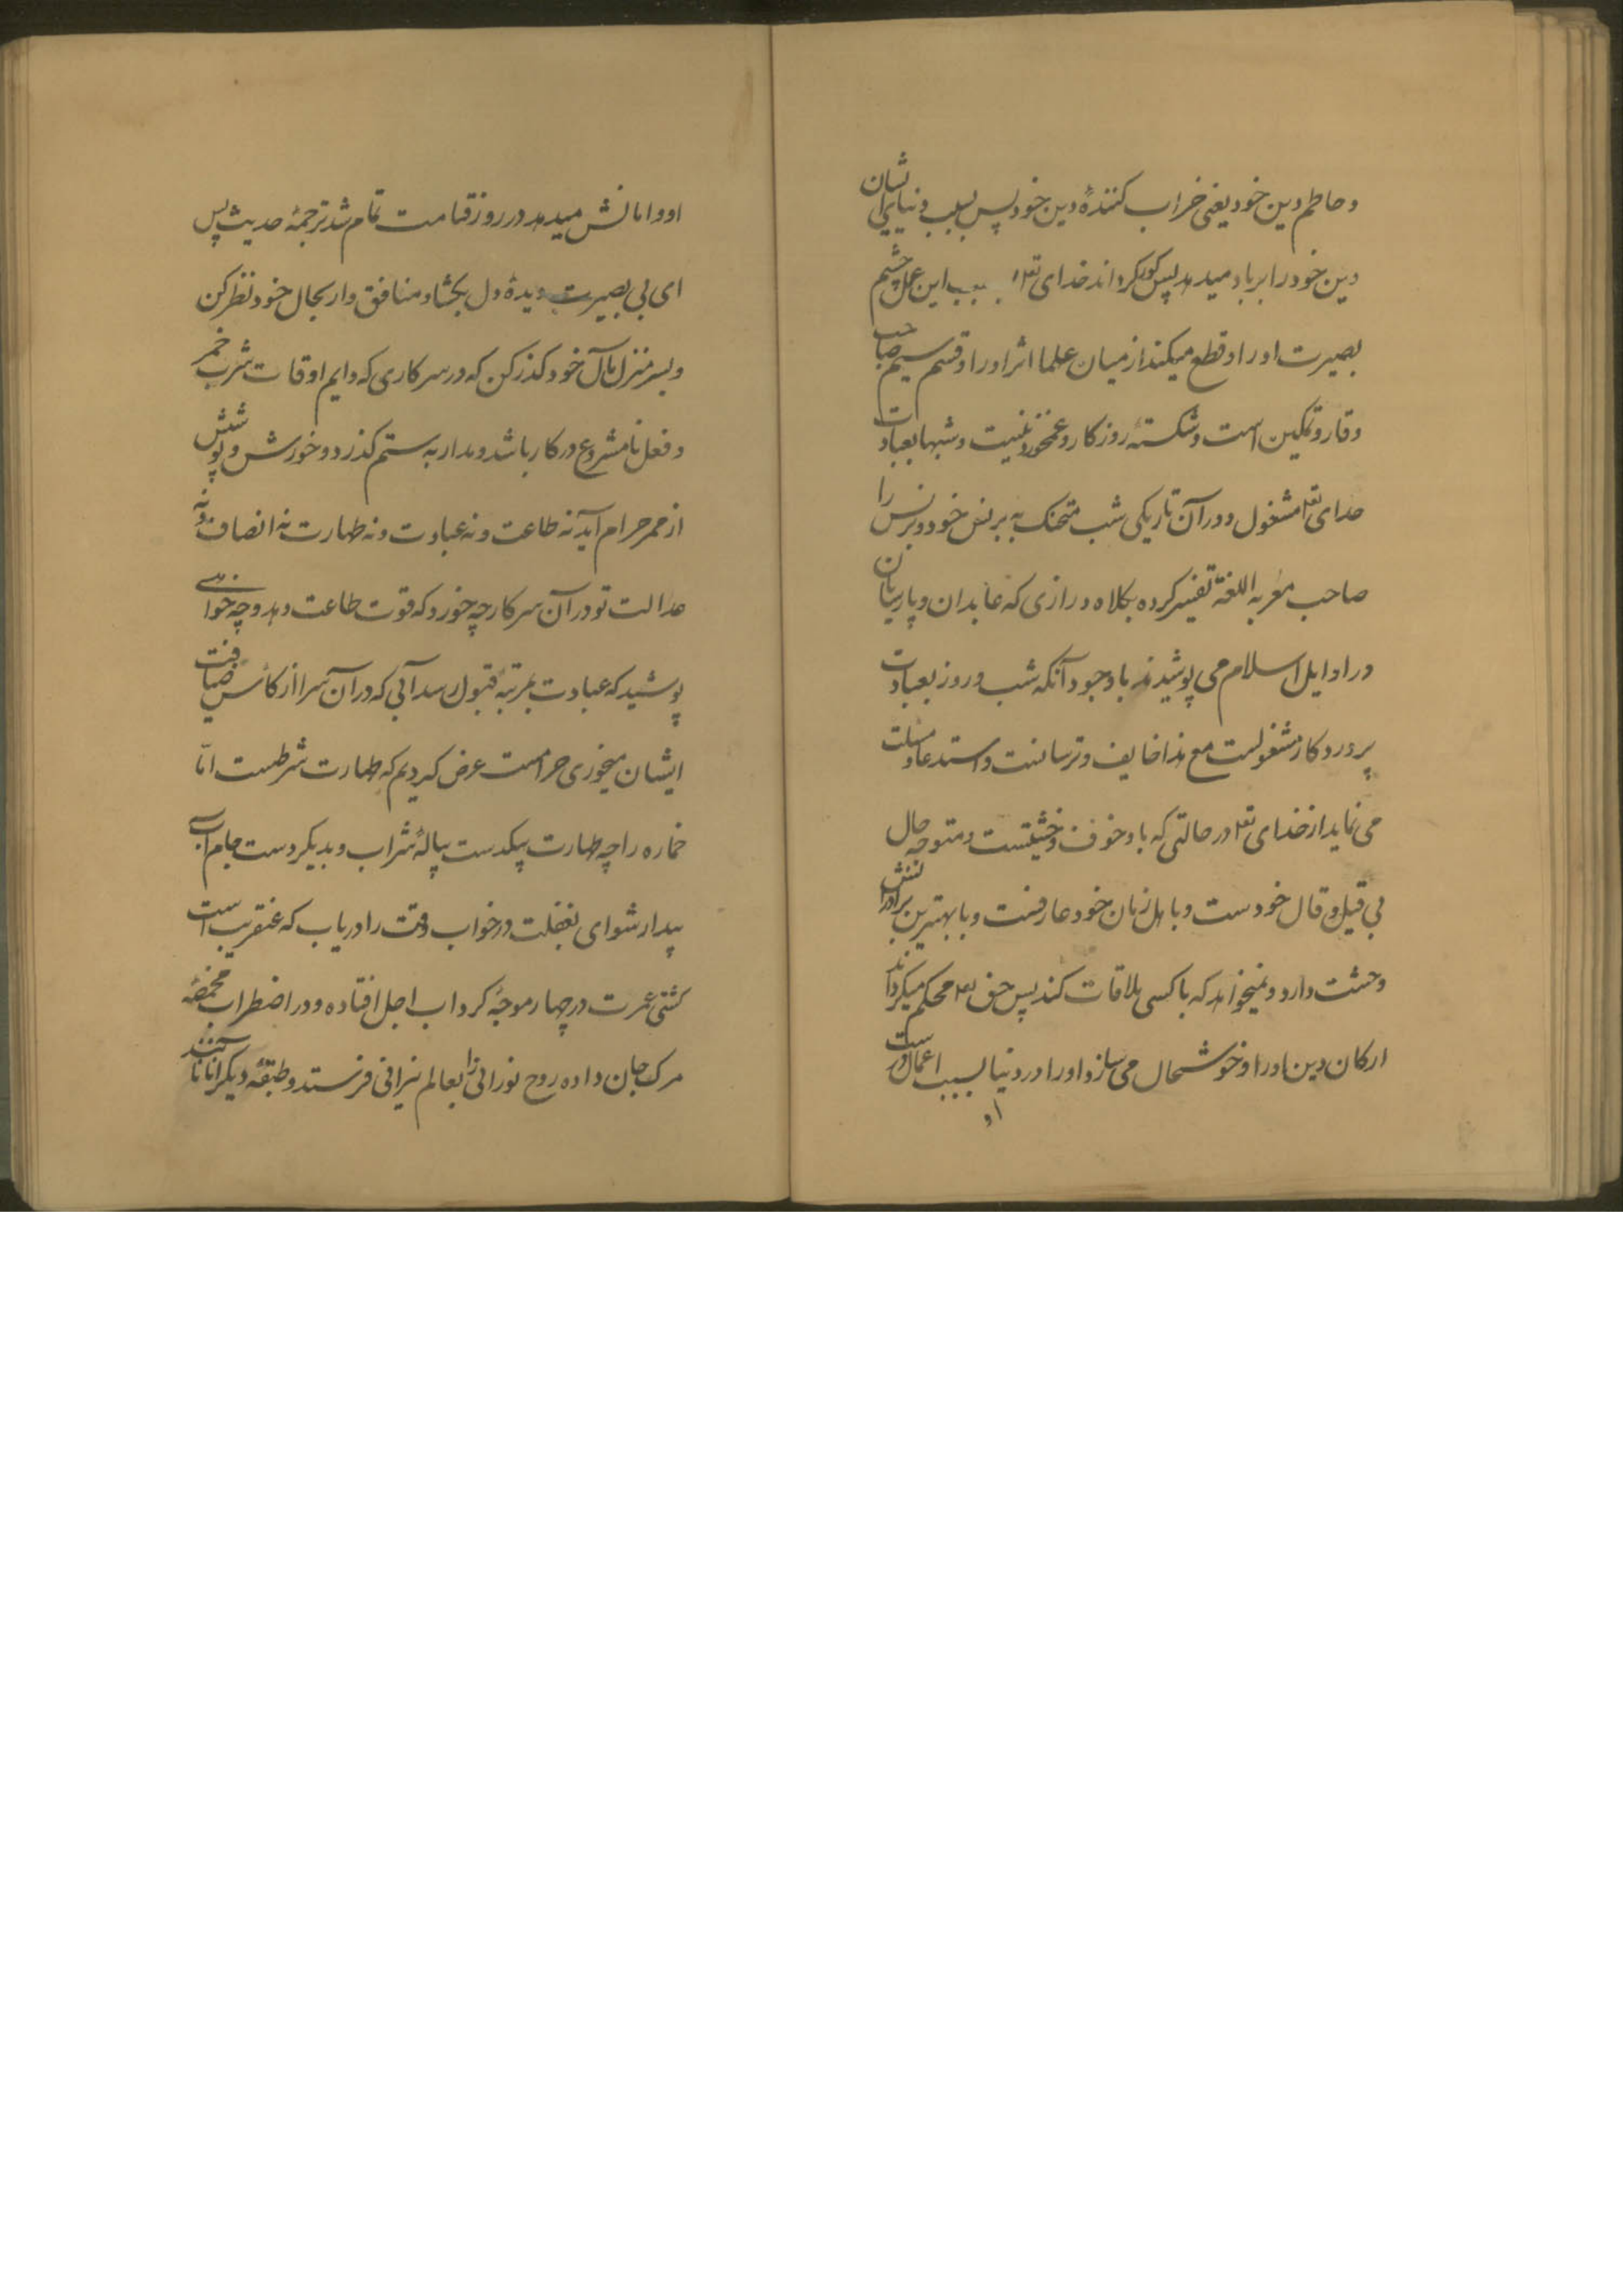 و حاطم دین خود یعنی خراب کنندهٔ دین خود پس بسبب دنیا برای ایشان
دین خود را برباد میدهد پس کور کرداند خدای تعا بسبب این عمل چشم
بصیرت او را و قطع میکند از میان علما اثر او را و قسم سیم صاحب
وقار و تمکین است و شکستهٔ روزکار و غمخور نیست و شبها بعبادات
خدای تعا مشغول و در آن تاریکی شب متحنک به برنس خود و برنس را
صاحب مغربه اللغة تفسیر کرده بکلاه درازی که عابدان و پارسایان
در اوایل اسلام می پوشیدند باوجود آنکه شب و روز بعبادت
پروردکار مشغولست مع هذا خایف و ترسانست و استدعا و مسئلت
می نماید از خدای تعا در حالتی که با خوف و خشیتست و متوجه حال
بی قیل و قال خودست و باهل زمان خود عارفست و با بهترین برادرانش
وحشت دارد و نمیخواهد که با کسی ملاقات کند پس حق تعا محکم میکرداند
ارکان دین او را و خوشحال می سازد او را در دنیا بسبب اعمال درست
او
او و امانش میدهد در روز قیامت تمام شد ترجمهٔ حدیث پس
ای بی بصیرت دیدهٔ دل بکشا و منافق وار بحال خود نظر کن
و بسر منزل مآل خود کذر کن که در سرکاری که دایم اوقات شرب خمر
و فعل نامشروع در کار باشد و مدار به ستم کذرد و خورش و پوشش
از ممر حرام آید نه طاعت و نه عبادت و نه طهارت نه انصاف و نه
عدالت تو در آن سرکار چه خورد که قوت طاعت دهد و چه خواهی
پوشید که عبادت بمرتبهٔ قبول رسد آبی که در آن سرا از کاس ضیافت
ایشان میخوری حرامست عرض کردیم که طهارت شرطست اما
خماره را چه طهارت بیکدست پیالهٔ شراب و بدیکر دست جام آب
بیدار شو ای بغفلت در خواب وقت را دریاب که عنقریب است
کشتی عمرت در چهار موجهٔ کرداب اجل افتاده و در اضطراب مخمصهٔ
مرک جان داده روح نورانی را بعالم نیرانی فرستد و طبقهٔ دیکر آنانند